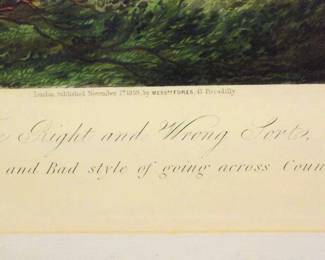 London Published November 1st 1859, by MESSRS FORES, 41 Piccadilly
Right and Wrong Sort,
and Bad style of going across Coun